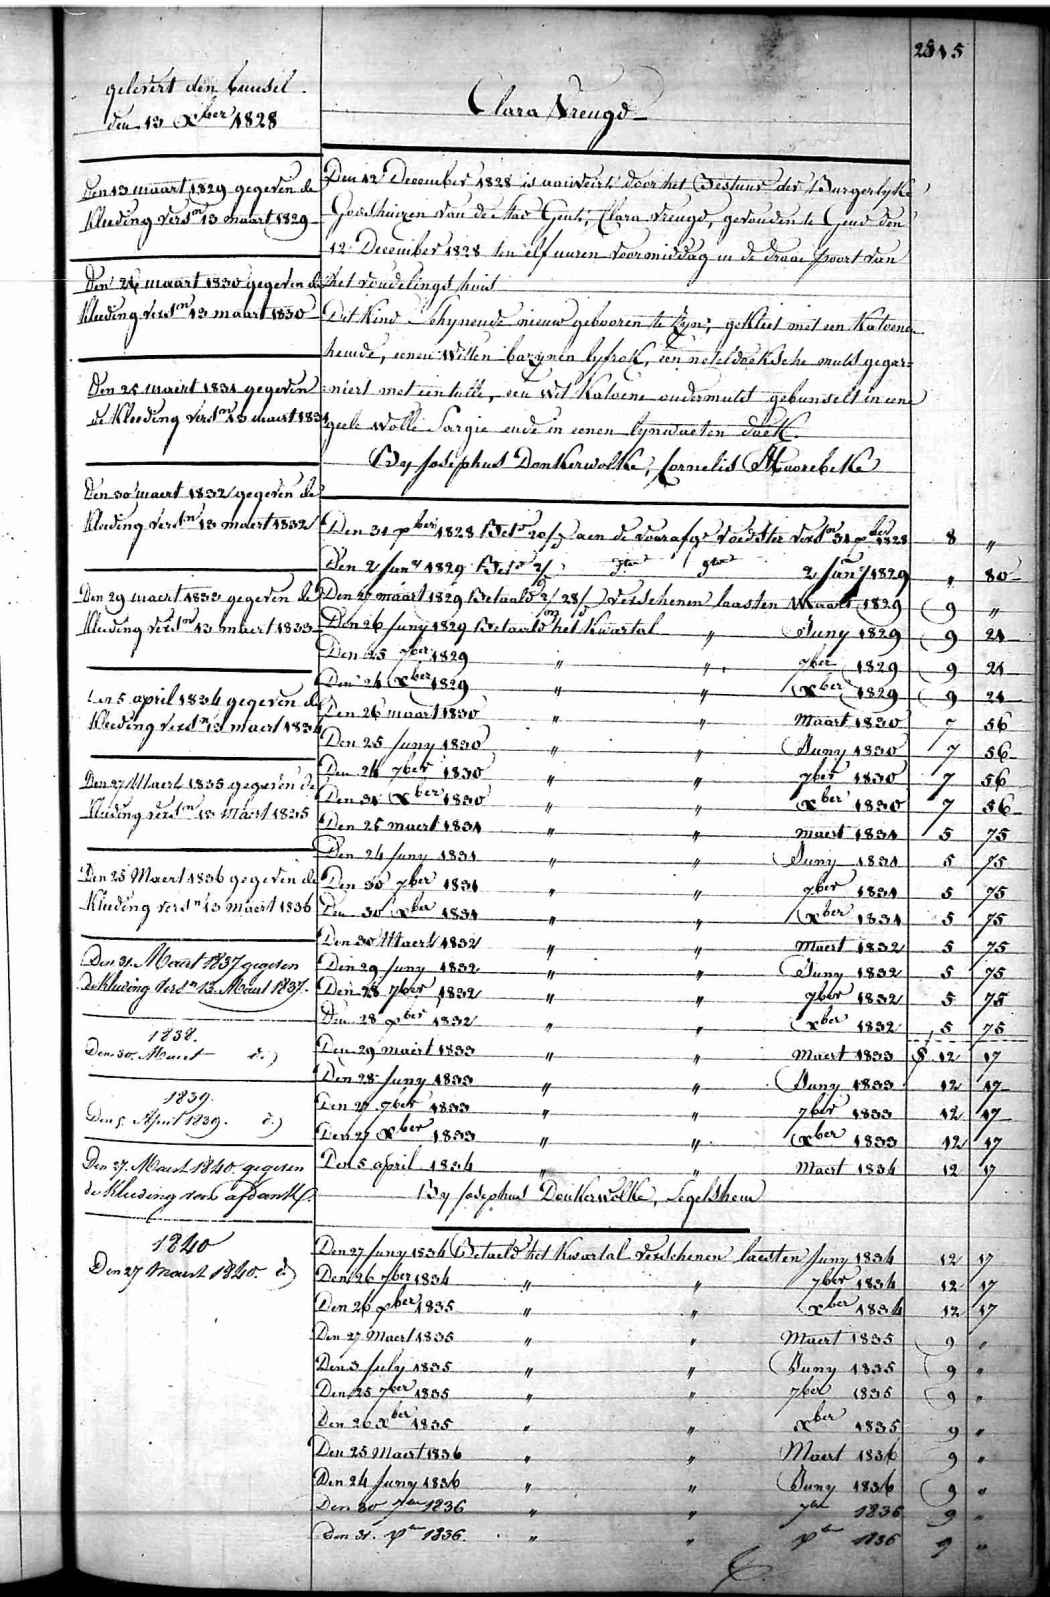 2815
gelevert den bunsel
den 13 Xber 1828
Clara Vreugd
Den 13 maart 1829 gegeven de
kleeding versn 13 maart 1829
Den 26 maart 1830 gegeven de
kleeding versn 13 maart 1830
Den 25 maert 1831 gegeven
de kleeding versn 13 maert 1831
Den 30 maert 1832 gegeven de
kleeding versn 13 maert 1832
Den 29 maert 1833 gegeven de
kleeding versn 13 maert 1833
Den 5 april 1834 gegeven de
kleeding versn 13 maert 1834
Den 27 Maert 1835 gegeven de
kleeding versn 13 Maert 1835
Den 25 Maert 1836 gegeven de
kleeding versn 13 maert 1836
Den 31 Maert 1837 gegeven
de kleeding versn 13 Maert 1837.
1838.
Den 30 Maert d°)
1839.
Den 5 April 1839. d°)
Den 27 Maert 1840 gegeven
de kleeding voor afdank
1840
Den 27 Maert 1840. d°)
Den 12 December 1828 is door het Bestuur der Burgerlyke
Godshuizen van de stad Gent, Clara Vreugd, gevonden te Gend den
12 December 1828 ten elf uuren voormiddag in de draae poort van
het vondelings huis
Dit Kind schynende nieuw gebooren te zyn, gekleet met een Katoene
hemde, eenen Witten bazynen lyfrok, een neteldoeksche muts gegar=
=niert met een tulle, een wit Katoene ondermuts gebunselt in eene
geele wolle Sargie ende in eenen lynwaeten doek.
By Josephus Donkerwolke, Cornelis Moorebeke
Den 31 xber 1828 Bet aen de voedster versn 31 xber 1828 8 "
Den 2 Jany 1829 Bet 2 Jany 1829 " 80
Den 27 maart 1829 Betaald verschenen laasten Maart 1829 9 "
Den 26 Juny 1829 Betaald het kwartal " Juny 1829 9 24
Den 25 7ber 1829 " " 7ber 1829 9 24
Den 24 Xber 1829 " " Xber 1829 9 24
Den 26 maart 1830 " " Maart 1830 7 56
Den 25 Juny 1830 " " Juny 1830 7 56
Den 24 7ber 1830 " " 7ber 1830 7 56
Den 31 Xber 1830 " " Xber 1830 7 56
Den 25 maert 1831 " " maert 1831 5 75
Den 24 Juny 1831 " " Juny 1831 5 75
Den 30 7ber 1831 " " 7ber 1831 5 75
Den 30 Xber 1831 " " Xber 1831 5 75
Den 30 Maert 1832 " " Maert 1832 5 75
Den 29 Juny 1832 " " Juny 1832 5 75
Den 28 7ber 1832 " " 7ber 1832 5 75
Den 28 xber 1832 " " Xber 1832 5 75
Den 29 maert 1833 " " Maert 1833 12 17
Den 28 Juny 1833 " " Juny 1833 12 17
Den 27 7ber 1833 " " 7ber 1833 12 17
Den 27 Xber 1833 " " Xber 1833 12 17
Den 5 april 1834 " " Maert 1834 12 17
By Josephus Donkerwolke, Segelshem
Den 27 Juny 1834 Betaeld het Kwartal verschenen laesten Juny 1834 12 17
Den 26 7ber 1834 " " 7ber 1834 12 17
Den 26 xber 1835 " " xber 1834 12 17
Den 27 Maert 1835 " " Maert 1835 9 "
Den 3 July 1835 " " Juny 1835 9 "
Den 25 7ber 1835 " " 7ber 1835 9 "
Den 26 xber 1835 " " xber 1835 9 "
Den 25 Maert 1836 " " Maert 1836 9 "
Den 24 Juny 1836 " " Juny 1836 9 "
Den 30 7ber 1836 " " 7ber 1836 9 "
Den 31. xber 1836. " " xber 1836 9 "